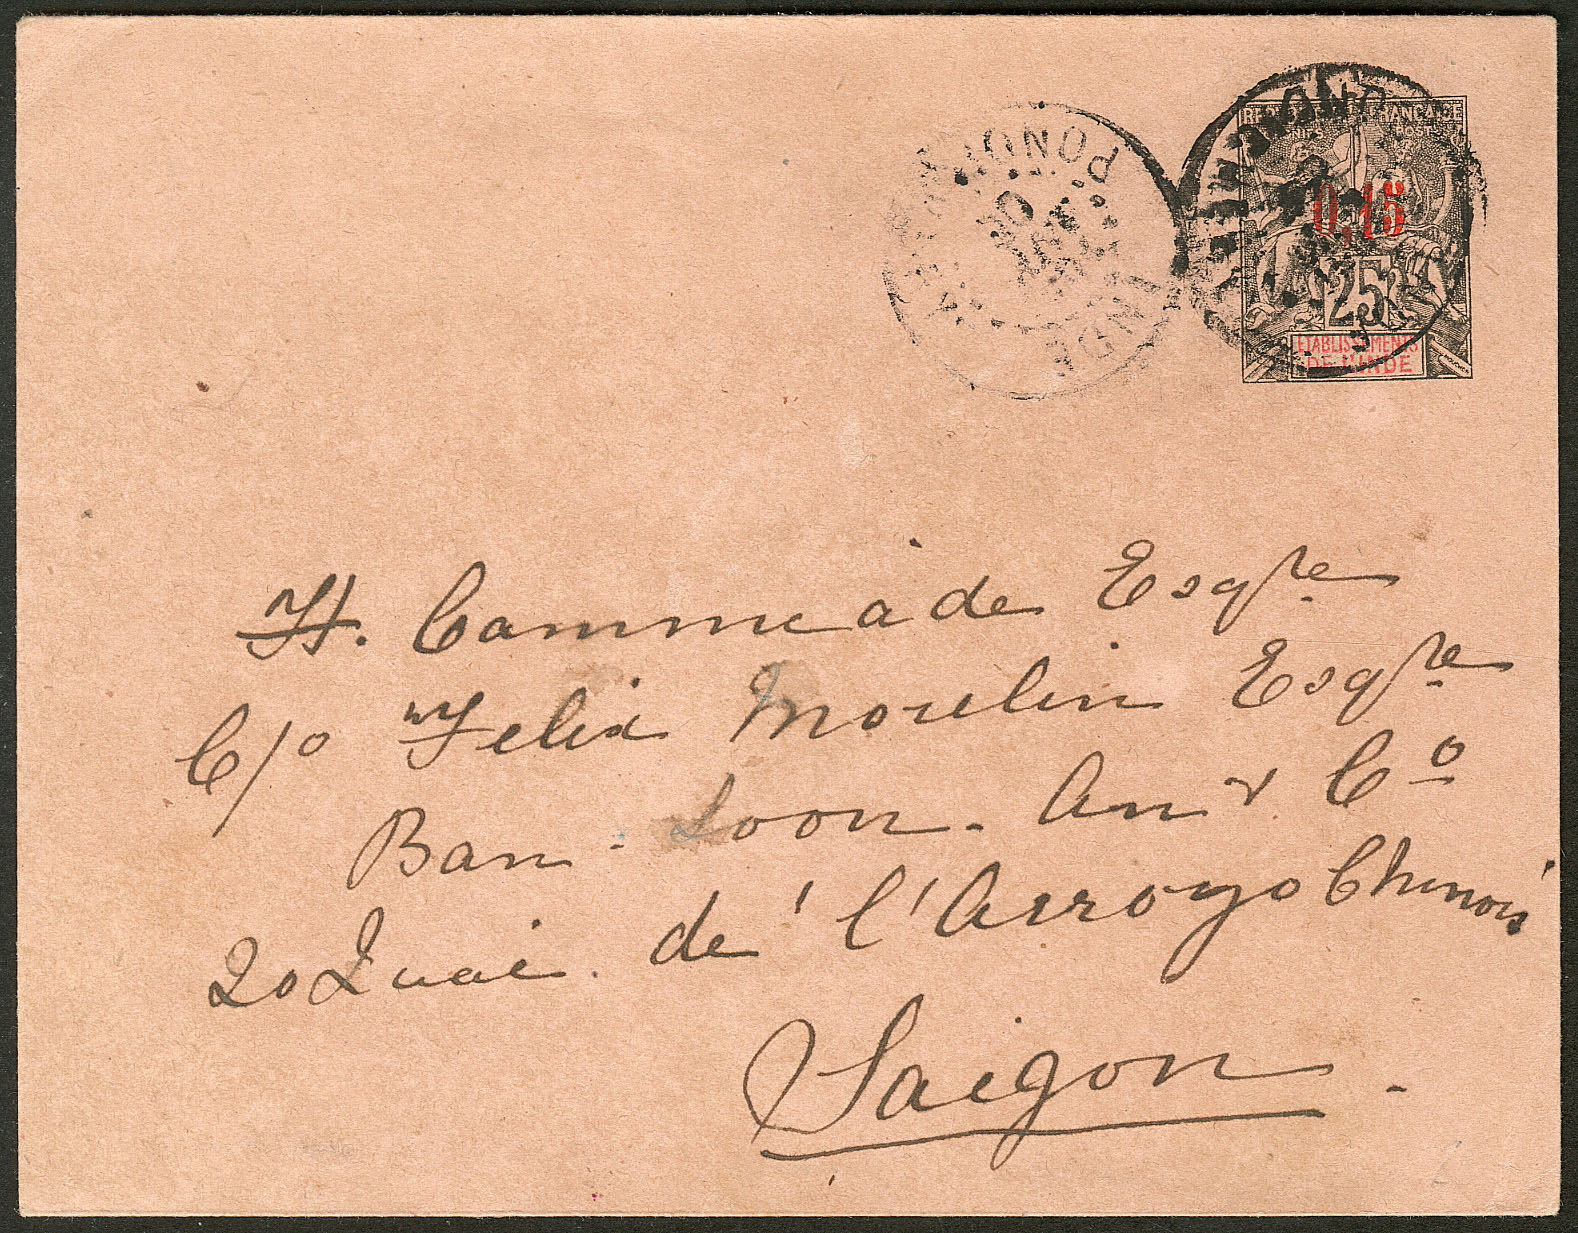 RÉPUBLIQUE FRANÇAISE
0,15
25
ÉTABLISSEMENTS
DE L'INDE
PONDICHERY
INDE
H. Cammiade Esqre
C/o Felix Moulin Esqre
Ban - Soon - An & Co
20 Quai de l'Arroyo Chinois
Saigon